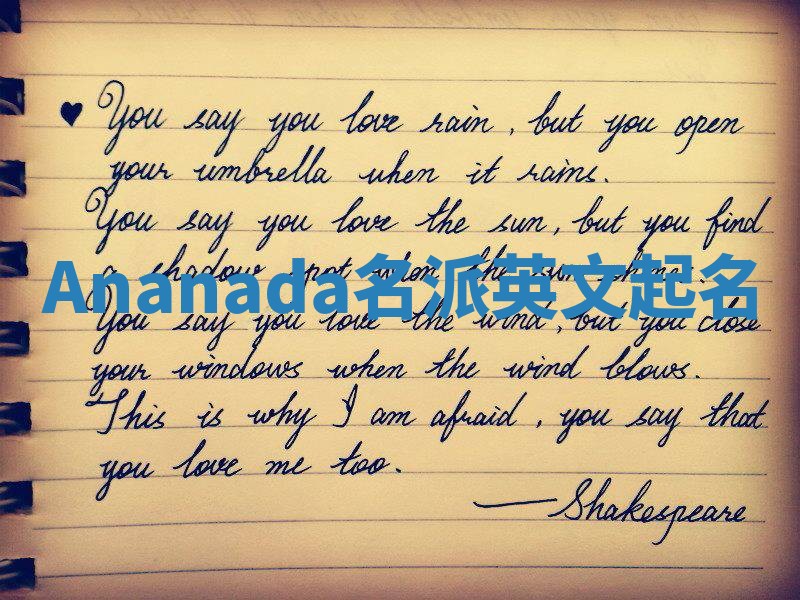 ♥ You say you love rain, but you open
your umbrella when it rains.
You say you love the sun, but you find
a shadow spot when the sun shines.
Ananada名派英文起名
You say you love the wind, but you close
your windows when the wind blows.
This is why I am afraid, you say that
you love me too.
—Shakespeare